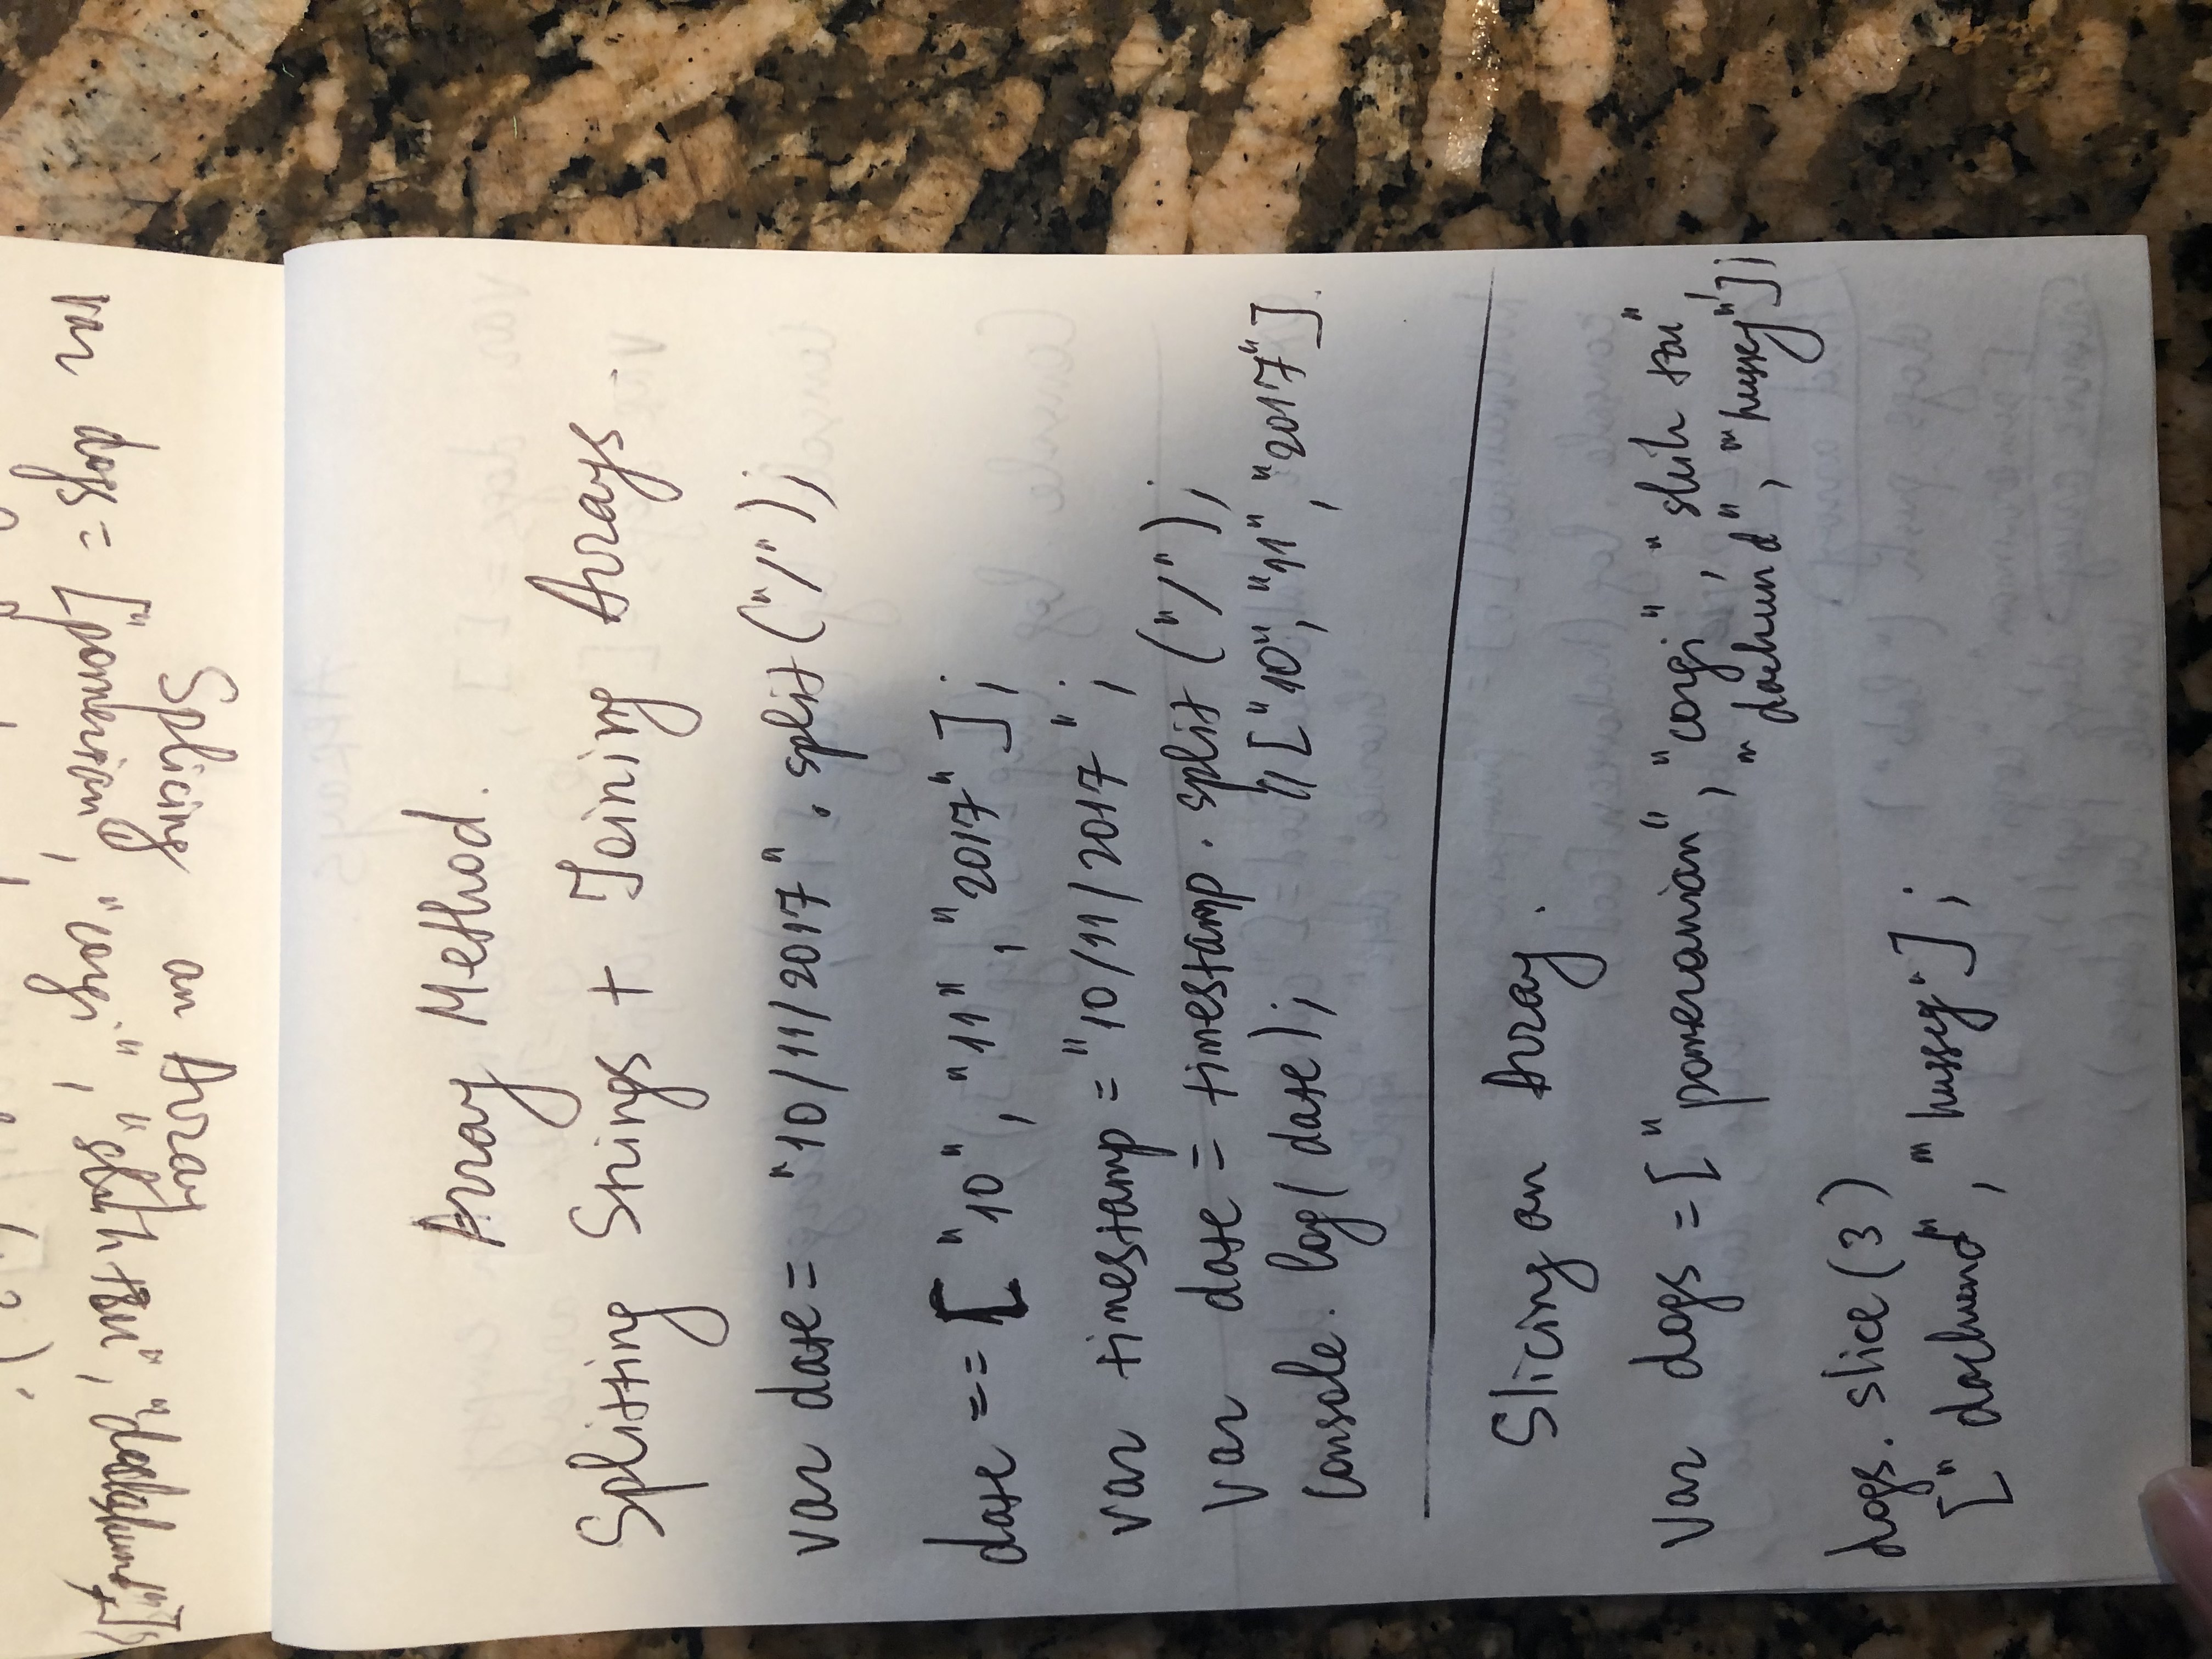 var dogs = ["pomerian", "corgi", "shih tzu", "dachshund"];
Splicing an Array
Array Method.
Splitting Strings + Joining Arrays.
var date = "10/11/2017".split("/");
date == ["10", "11", "2017"];
var timestamp = "10/11/2017";
var date = timestamp.split("/");
console.log(date); // ["10", "11", "2017"].
Slicing an Array.
Var dogs = ["pomeranian", "corgi", "shih tzu",
"dachund", "hussey"];
dogs.slice(3)
["dachund", "hussey"];